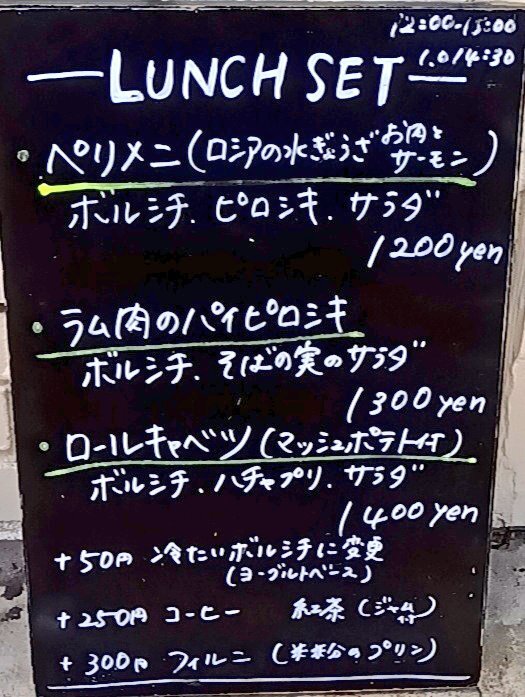 12:00-15:00
L.O 14:30
LUNCH SET
・ペリメニ(ロシアの水ぎょうざ お肉とサーモン)
ボルシチ、ピロシキ、サラダ
1200yen
・ラム肉のパイピロシキ
ボルシチ、そばの実のサラダ
1300yen
・ロールキャベツ(マッシュポテト付)
ボルシチ、ハチャプリ、サラダ
1400yen
+50円 冷たいボルシチに変更
(ヨーグルトベース)
+250円 コーヒー 紅茶(ジャム付)
+300円 フィルニ(米粉のプリン)